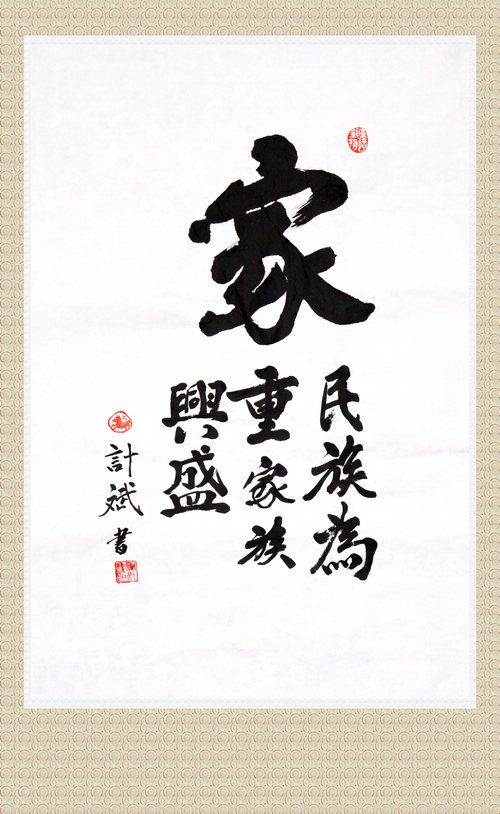 家
民族為
重家族
興盛
計斌書